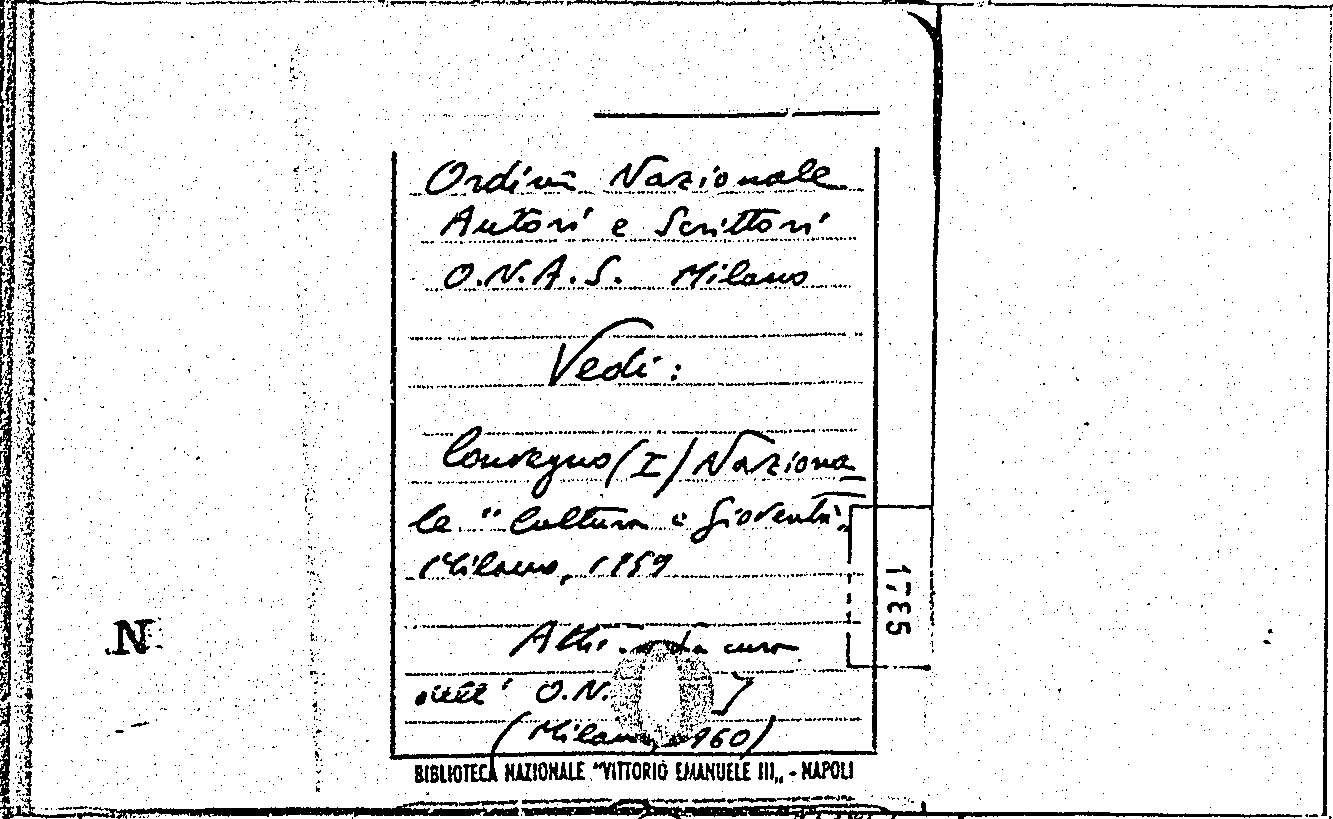 Ordine Nazionale
Autori e Scrittori
O.N.A.S. Milano
Vedi:
Convegno (I) Naziona
le "Cultura e Gioventù",
Milano, 1959
Atti. a cura
dell' O.N. ]
(Milano, 1960)
N
BIBLIOTECA NAZIONALE "VITTORIO EMANUELE III„ - NAPOLI